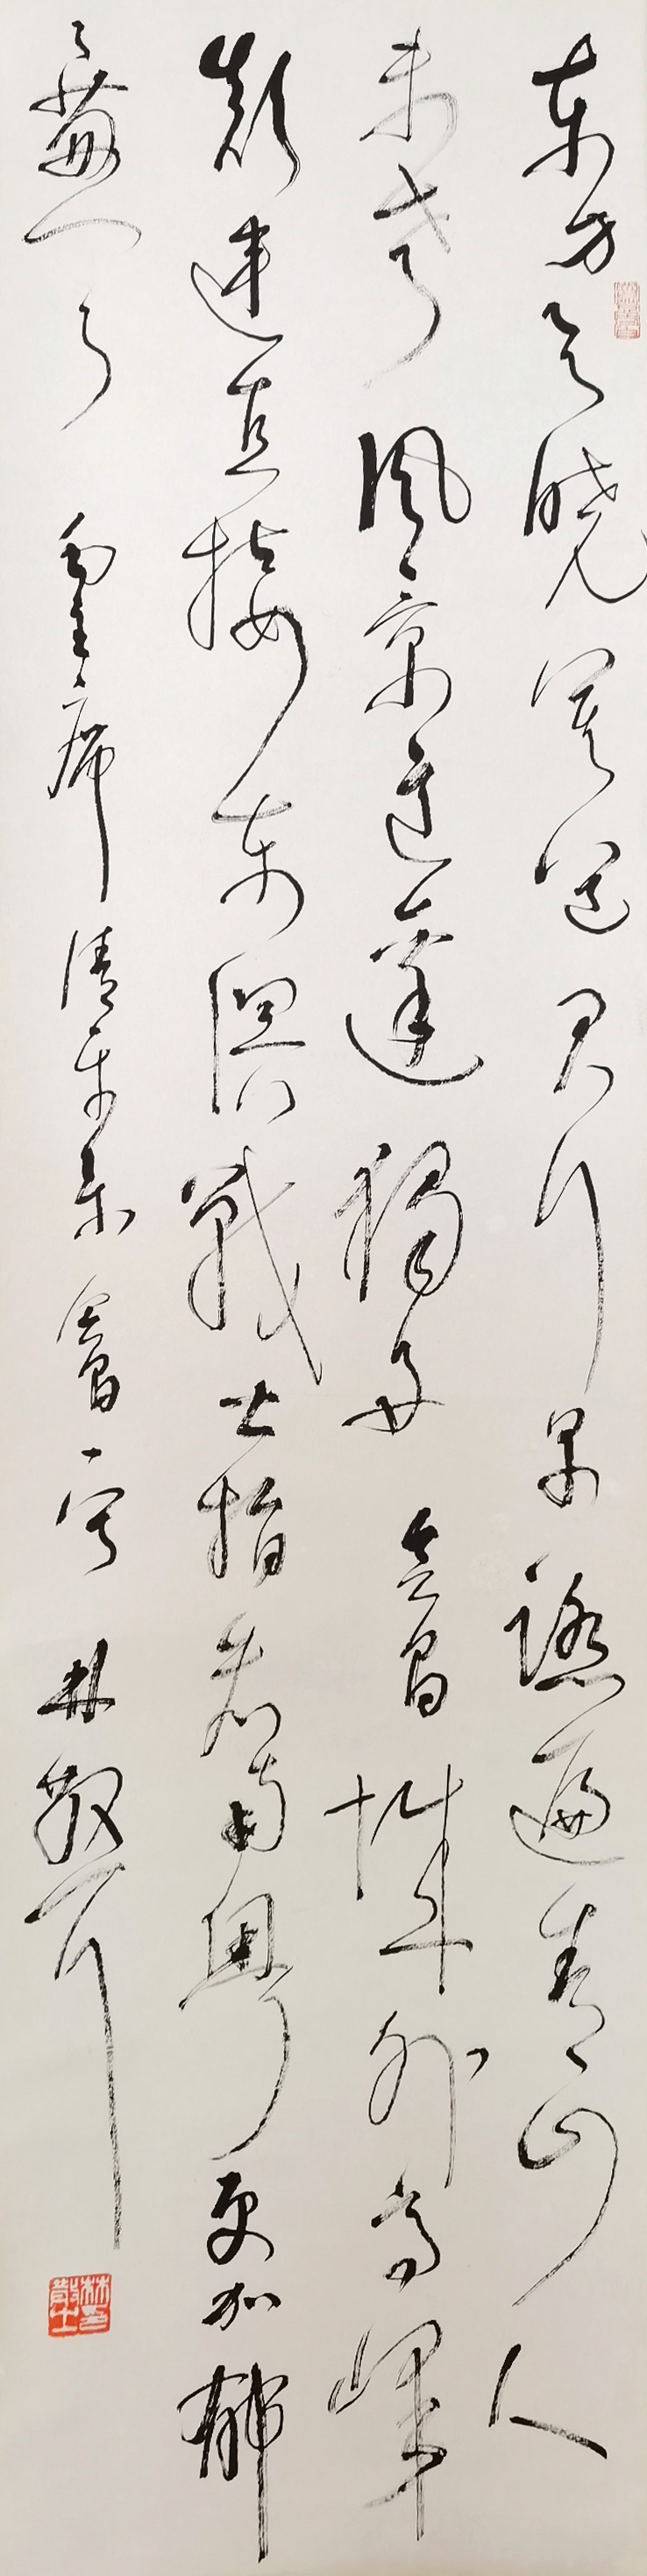 东方欲晓莫道君行早踏遍青山人
未老风景这边独好 会昌城外高峰
颠连直接东溟战士指看南粤更加郁
郁葱葱 毛主席清平乐会昌 林散耳
林散之印